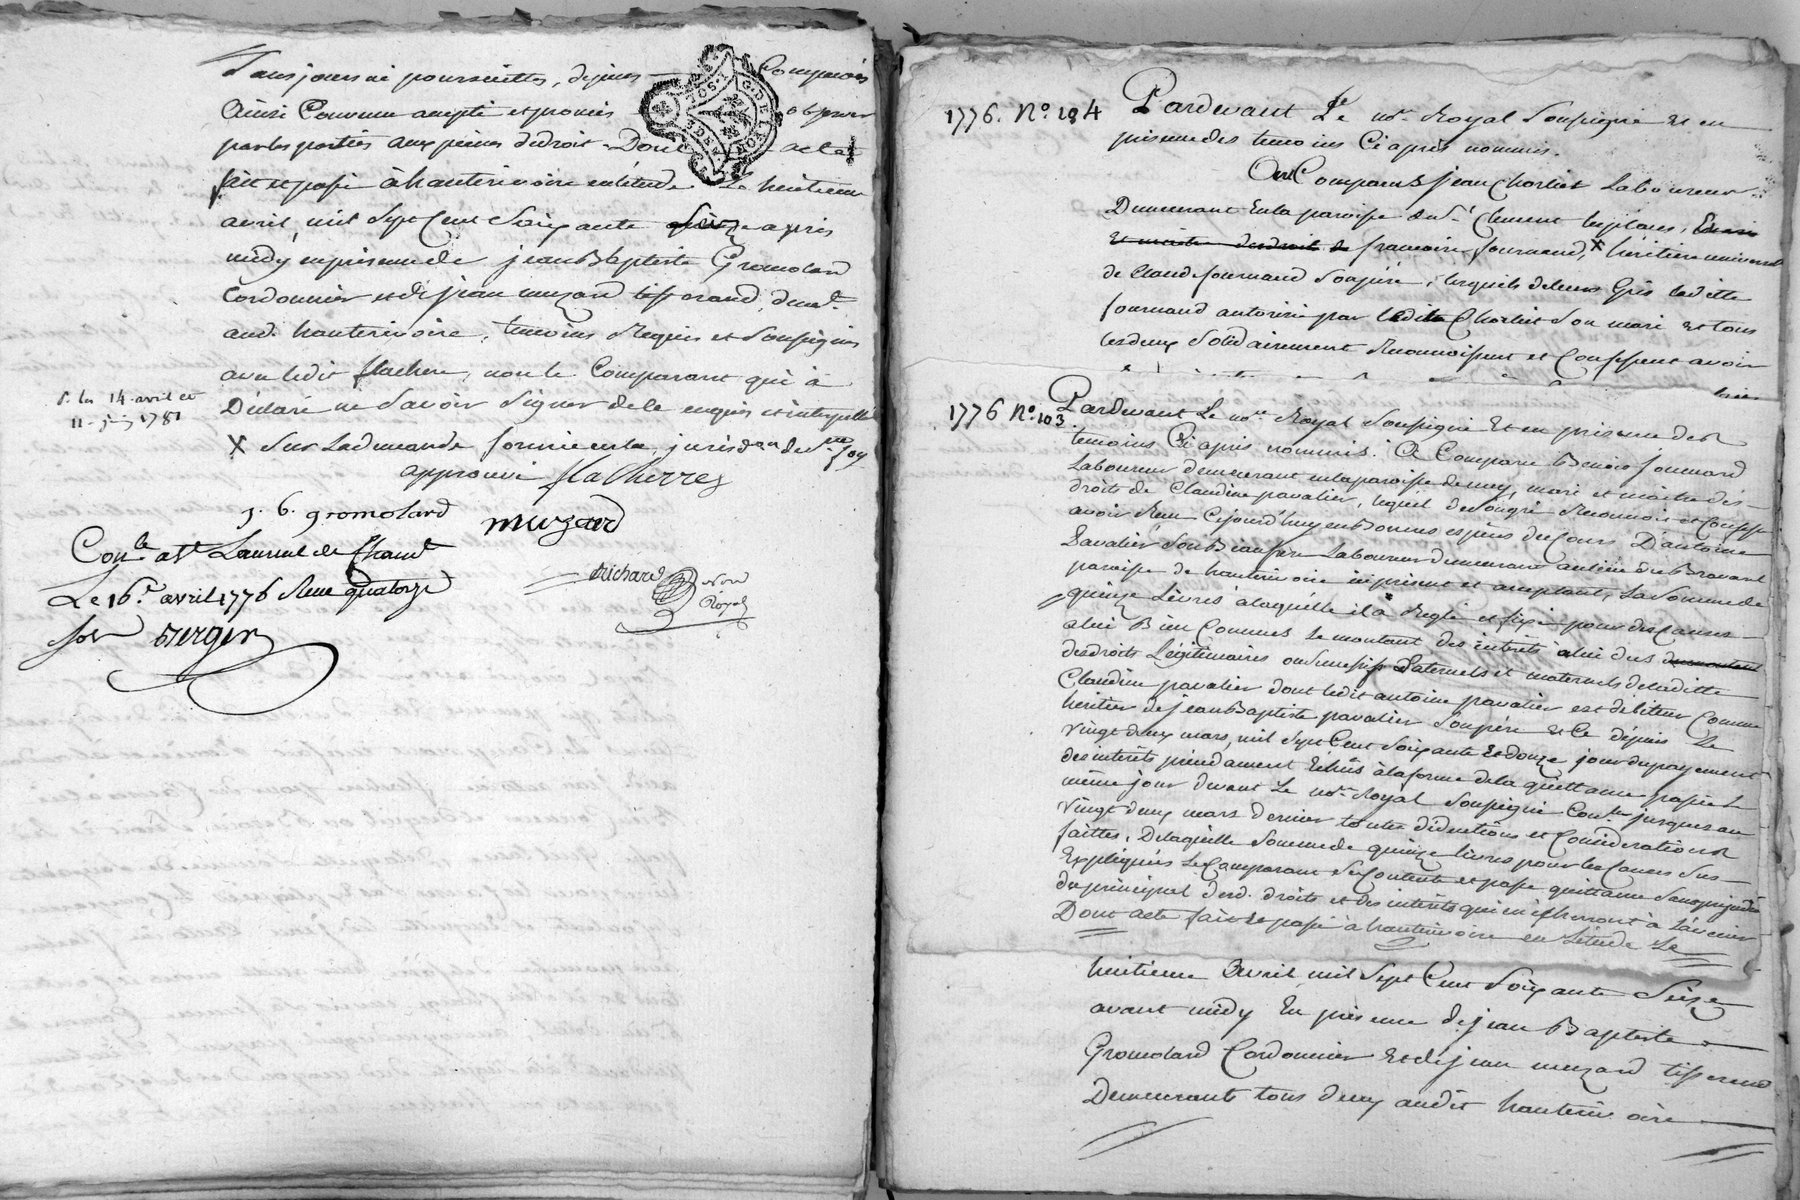 Dans jours ni poursuittes, dejours Comparois
Ainsi Convenu accepté et promis observer
par les parties aux peines de droit. Dont acte
fait et passé à hauterivoire en l'étude Le huitieme
avril mil sept Cent Soixante Seize apres
midy en presence de jean Baptiste Gromolard
Cordonnier et de jean muzard tisserand demt.
aud. hauterivoire, temoins Requis et Soussignés
avec ledit flachere, non le Comparant qui à
Déclaré ne Savoir Signer de ce enquis et interpellé
X Sur La demande formée en la jurisd.on de St. foy
approuvé flacherre
s. les 14. avril et
11. juin 1781
j. b. gromolard muzard
Con.lé a St Laurent de Cham.t
Le 16.e avril 1776 Reçu quatorze
sols Berger
Richard Nore Royal
G. DE LYON
1776. N.o 104
Pardevant Le no.re Royal Soussigné et en
presence des temoins Ci après nommés.
Ont Comparus jean Chorliet Laboureur
Demeurant en la paroisse de St. Clement les places,
et maitre des droits de françoise fournand, X héritiere universel
de Claude fournand Son père, lesquels de leurs Grés ladite
fournand autorisée par ledit Chorliet Son mari et tous
les deux Solidairement Reconnoissent et Confessent avoir
1776 N.o 103
Pardevant Le no.re Royal Soussigné et en presence des
temoins Ci après nommés. A Comparu Benoit fournand
Laboureur demeurant en la paroisse de mey, mari et maitre des
droits de Claudine pavalier, lequel de Son gré Reconnoit et Confesse
avoir Reçu Cejourd'huy en Bonnes espèces de Cours D'antoine
Pavalier Son Beaufrere Laboureur demeurant au lieu du Bravard
paroisse de hauterivoire icy présent et acceptant, La Somme de
quinze Livres à laquelle il à Reglé et fixé pour des Causes
a lui Bien Connues le montant des intérêts à lui dus
des droits Légitimaires ou Successifs paternels et maternels de ladite
Claudine pavalier dont ledit antoine pavalier est debiteur Comme
héritier de jean Baptiste pavalier Son père et Ce depuis Le
vingt deux mars mil Sept Cent Soixante et douze jour du payement
des intérêts précédament échus à la forme de la quittance passée le
même jour devant Le no.re Royal Soussigné Con.lée jusques au
vingt deux mars dernier toutes déductions et Considerations
faittes, De laquelle Somme de quinze livres pour les Causes Sus
Expliquées Le Comparant Se Contente et passe quittance Sans préjudice
du principal desd. droits et des intérêts qui en écherront à L'avenir
Dont acte fait et passé à hauterivoire en L'étude Le
huitieme avril mil Sept Cent Soixante Seize
avant midy En présence de jean Baptiste
Gromolard Cordonnier et de jean muzard tisserand
Demeurants tous deux audit hauterivoire